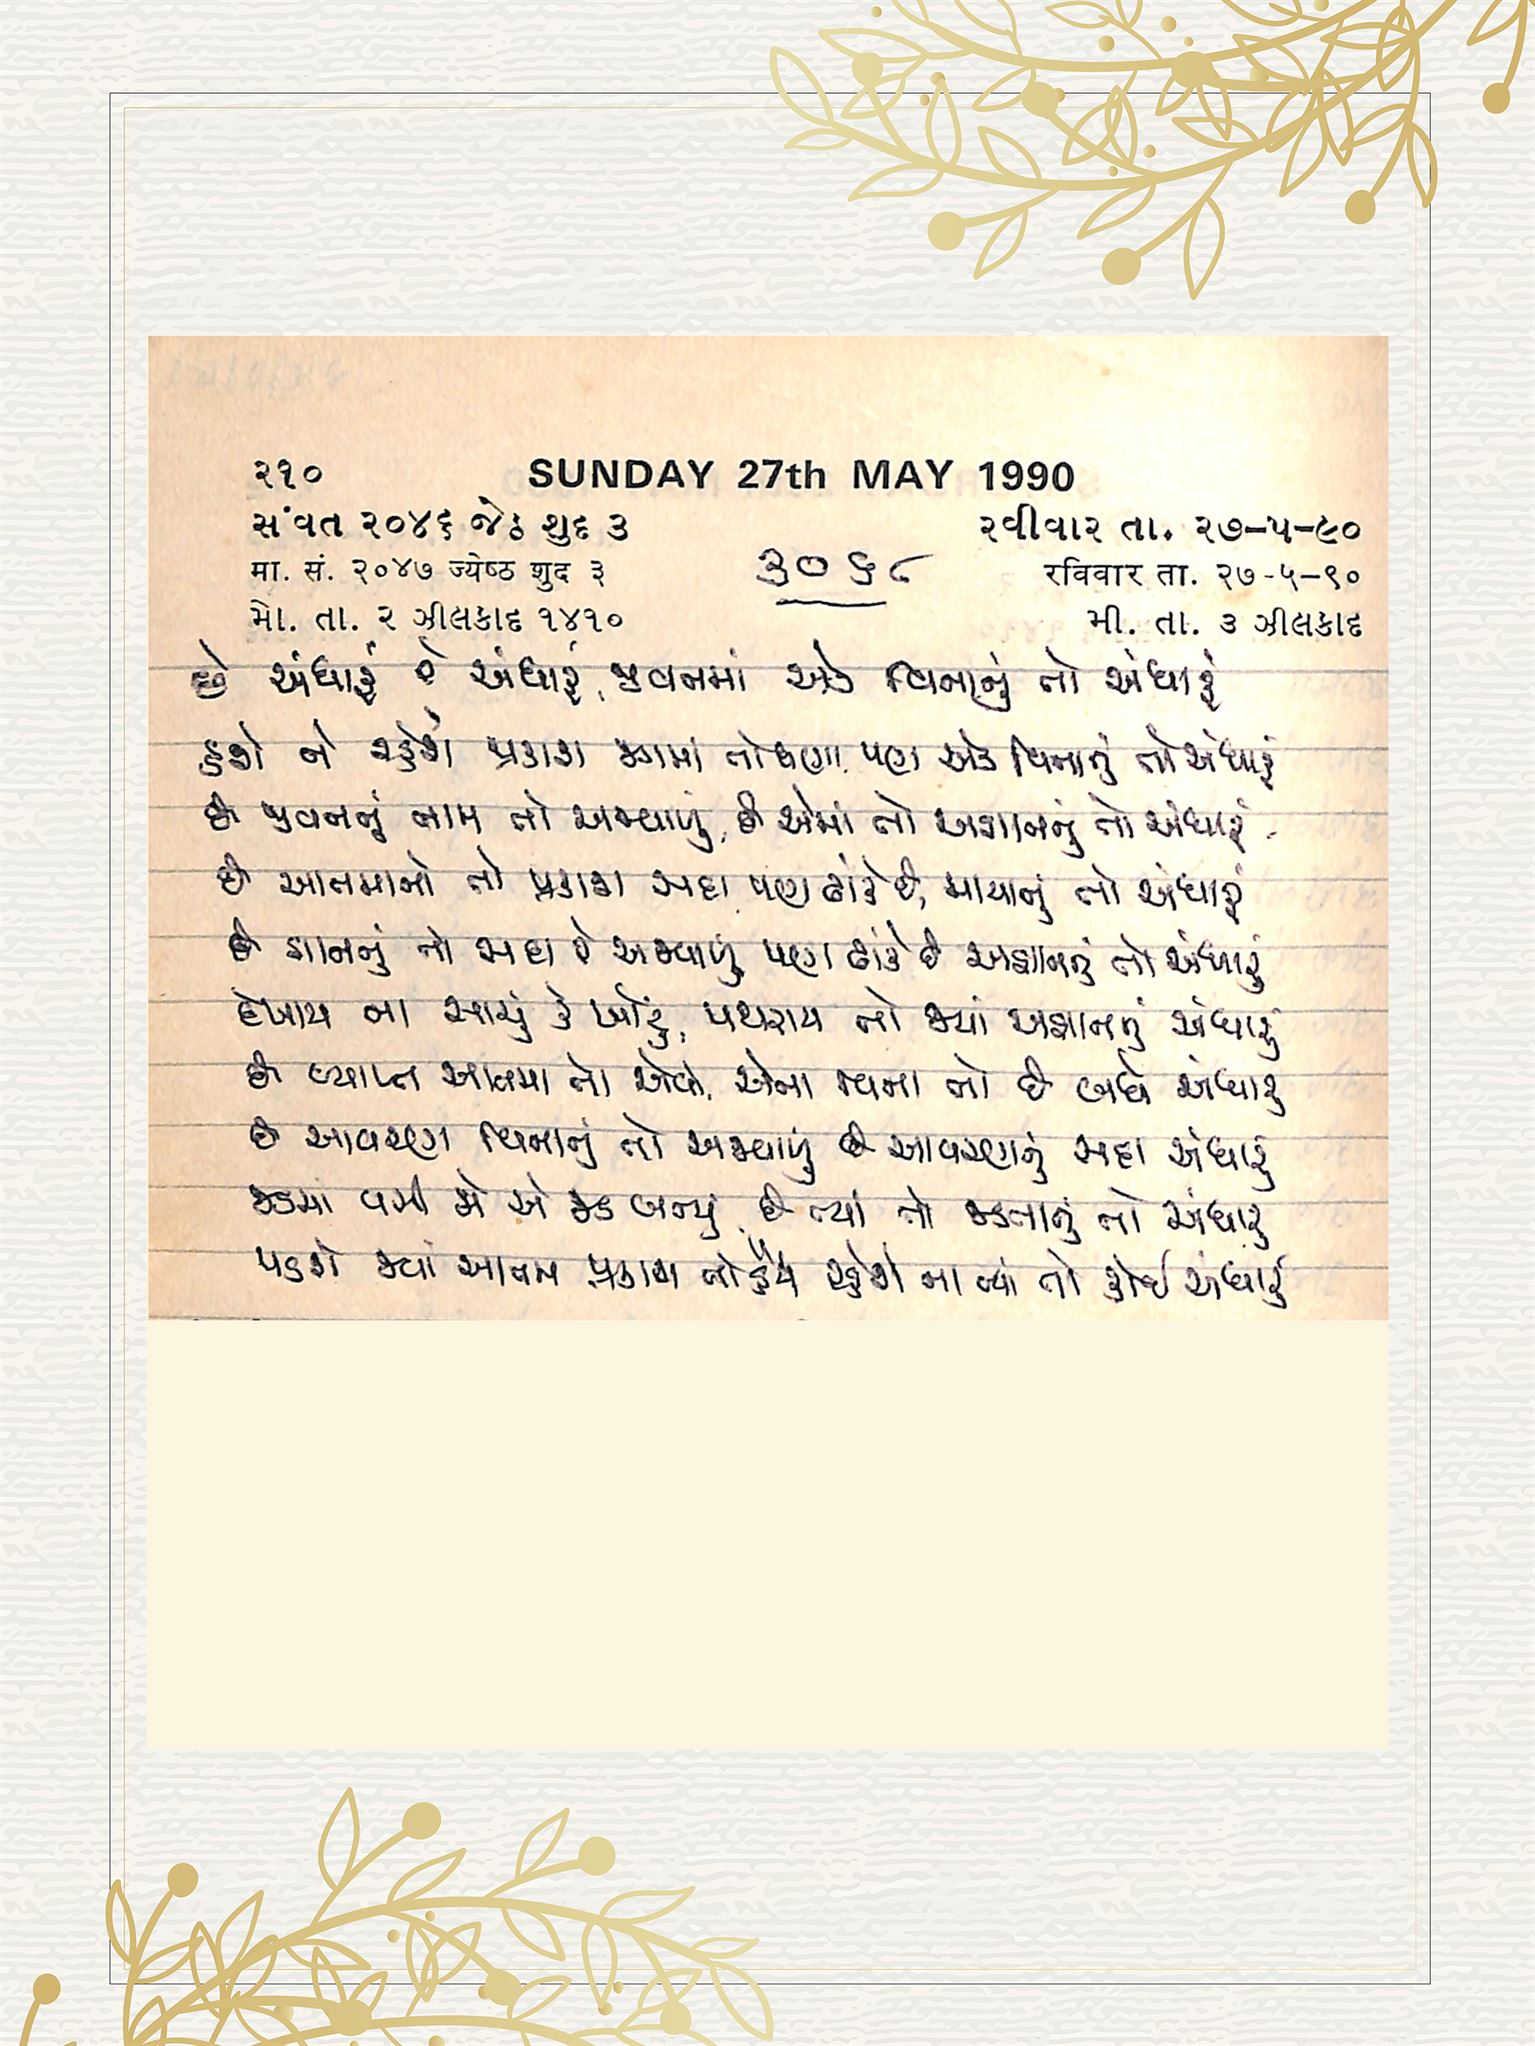 ૨૧૦ SUNDAY 27th MAY 1990
સંવત ૨૦૪૬ જેઠ શુદ ૩ રવીવાર તા. ૨૭-૫-૯૦
मा. सं. २०४७ ज्येष्ठ शुद ३ ૩૦૬૮ रविवार ता. २७-५-९०
મો. તા. ૨ ઝીલકાદ ૧૪૧૦ મી. તા. ૩ ઝીલકાદ
છે અંધારૂં રે અંધારૂં, જીવનમાં એક વિનાનું તો અંધારૂં
હશે ને રહેશે પ્રકાશ જગમાં તો ઘણા પણ એક વિનાનું તો અંધારૂં
છે જીવનનું નામ તો અજવાળું, છે એમાં તો અજ્ઞાનનું તો અંધારૂં
છે આતમાનો તો પ્રકાશ સદા પણ ઢાંકે છે, માયાનું તો અંધારૂં
છે જ્ઞાનનું તો સદા રે અજવાળું, પણ ઢાંકે છે અજ્ઞાનનું તો અંધારું
દેખાય ના સાચું કે ખોટું, પથરાય તો જ્યાં અજ્ઞાનનું અંધારું
છે વ્યાપ્ત આતમા તો એવો, એના વિના તો છે બધે અંધારું
છે આવરણ વિનાનું તો અજવાળું છે આવરણનું સદા અંધારું
જડમાં વસી જો એ જડ બન્યું, છે ત્યાં તો જડતાનું તો અંધારું
પડશે જ્યાં આતમ પ્રકાશ તો હૈયે રહેશે ના ત્યાં તો કોઈ અંધારું